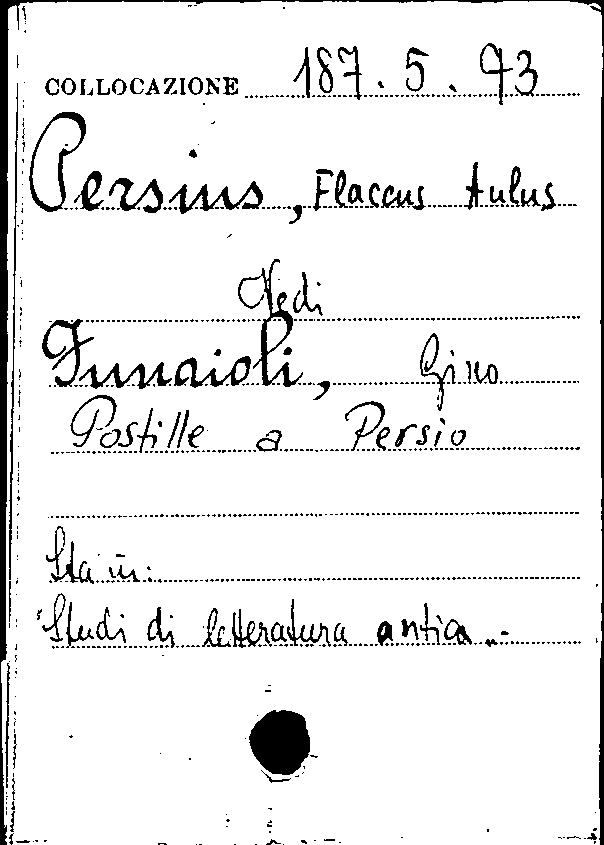 COLLOCAZIONE 187.5.93
Persius, Flaccus Aulus
Vedi
Funaioli, Gino
Postille a Persio
Sta in:
Studi di letteratura antica..-